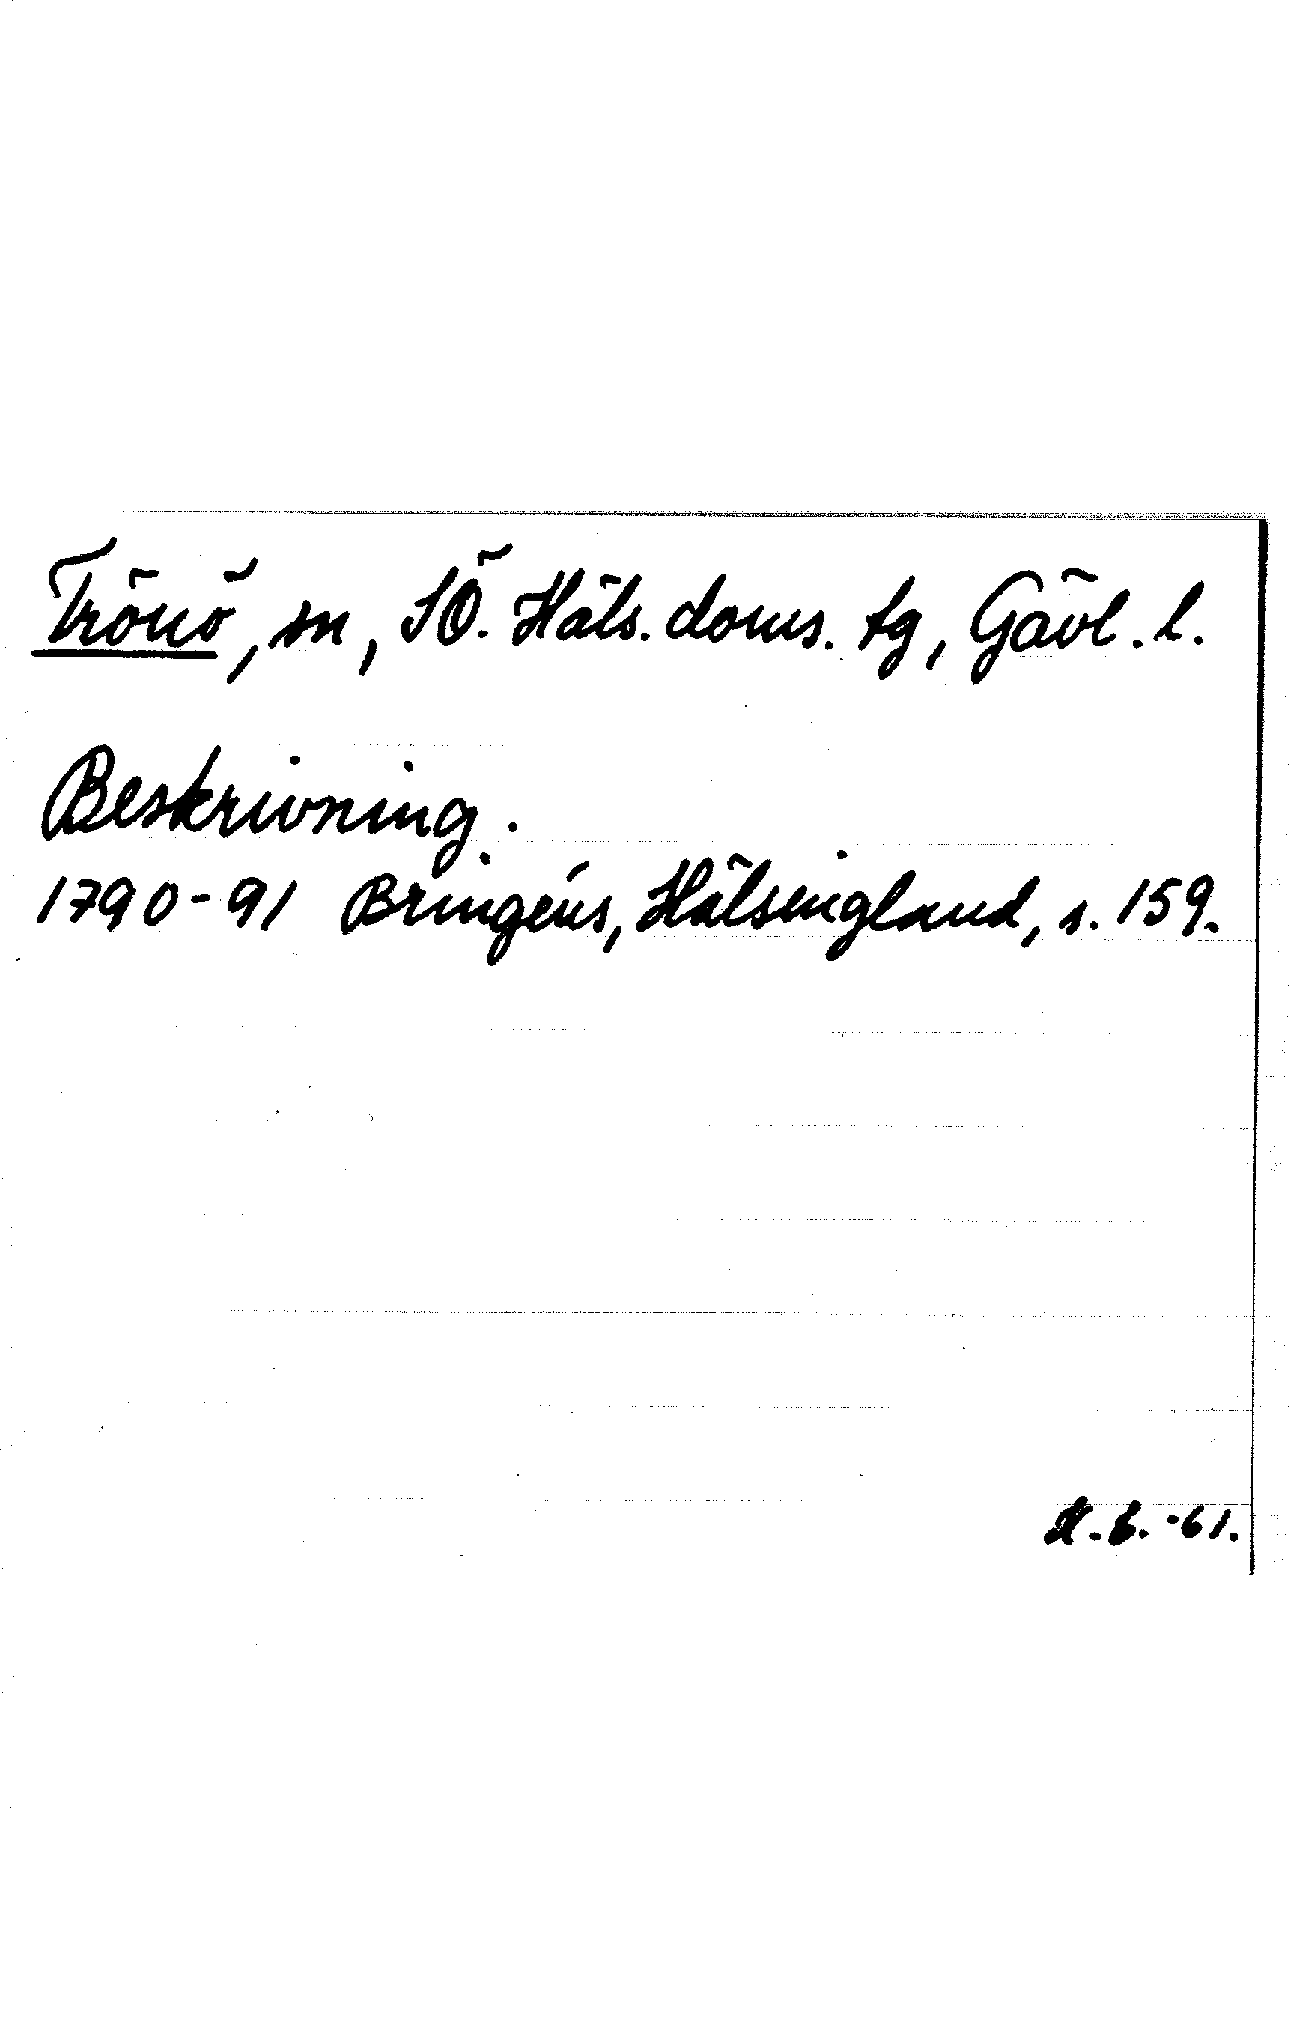 Trönö, sn, SÖ. Häls. doms. tg, Gävl. l.
Beskrivning.
1790-91 Bringéus, Hälsingland, s. 159.
H.b. -61.